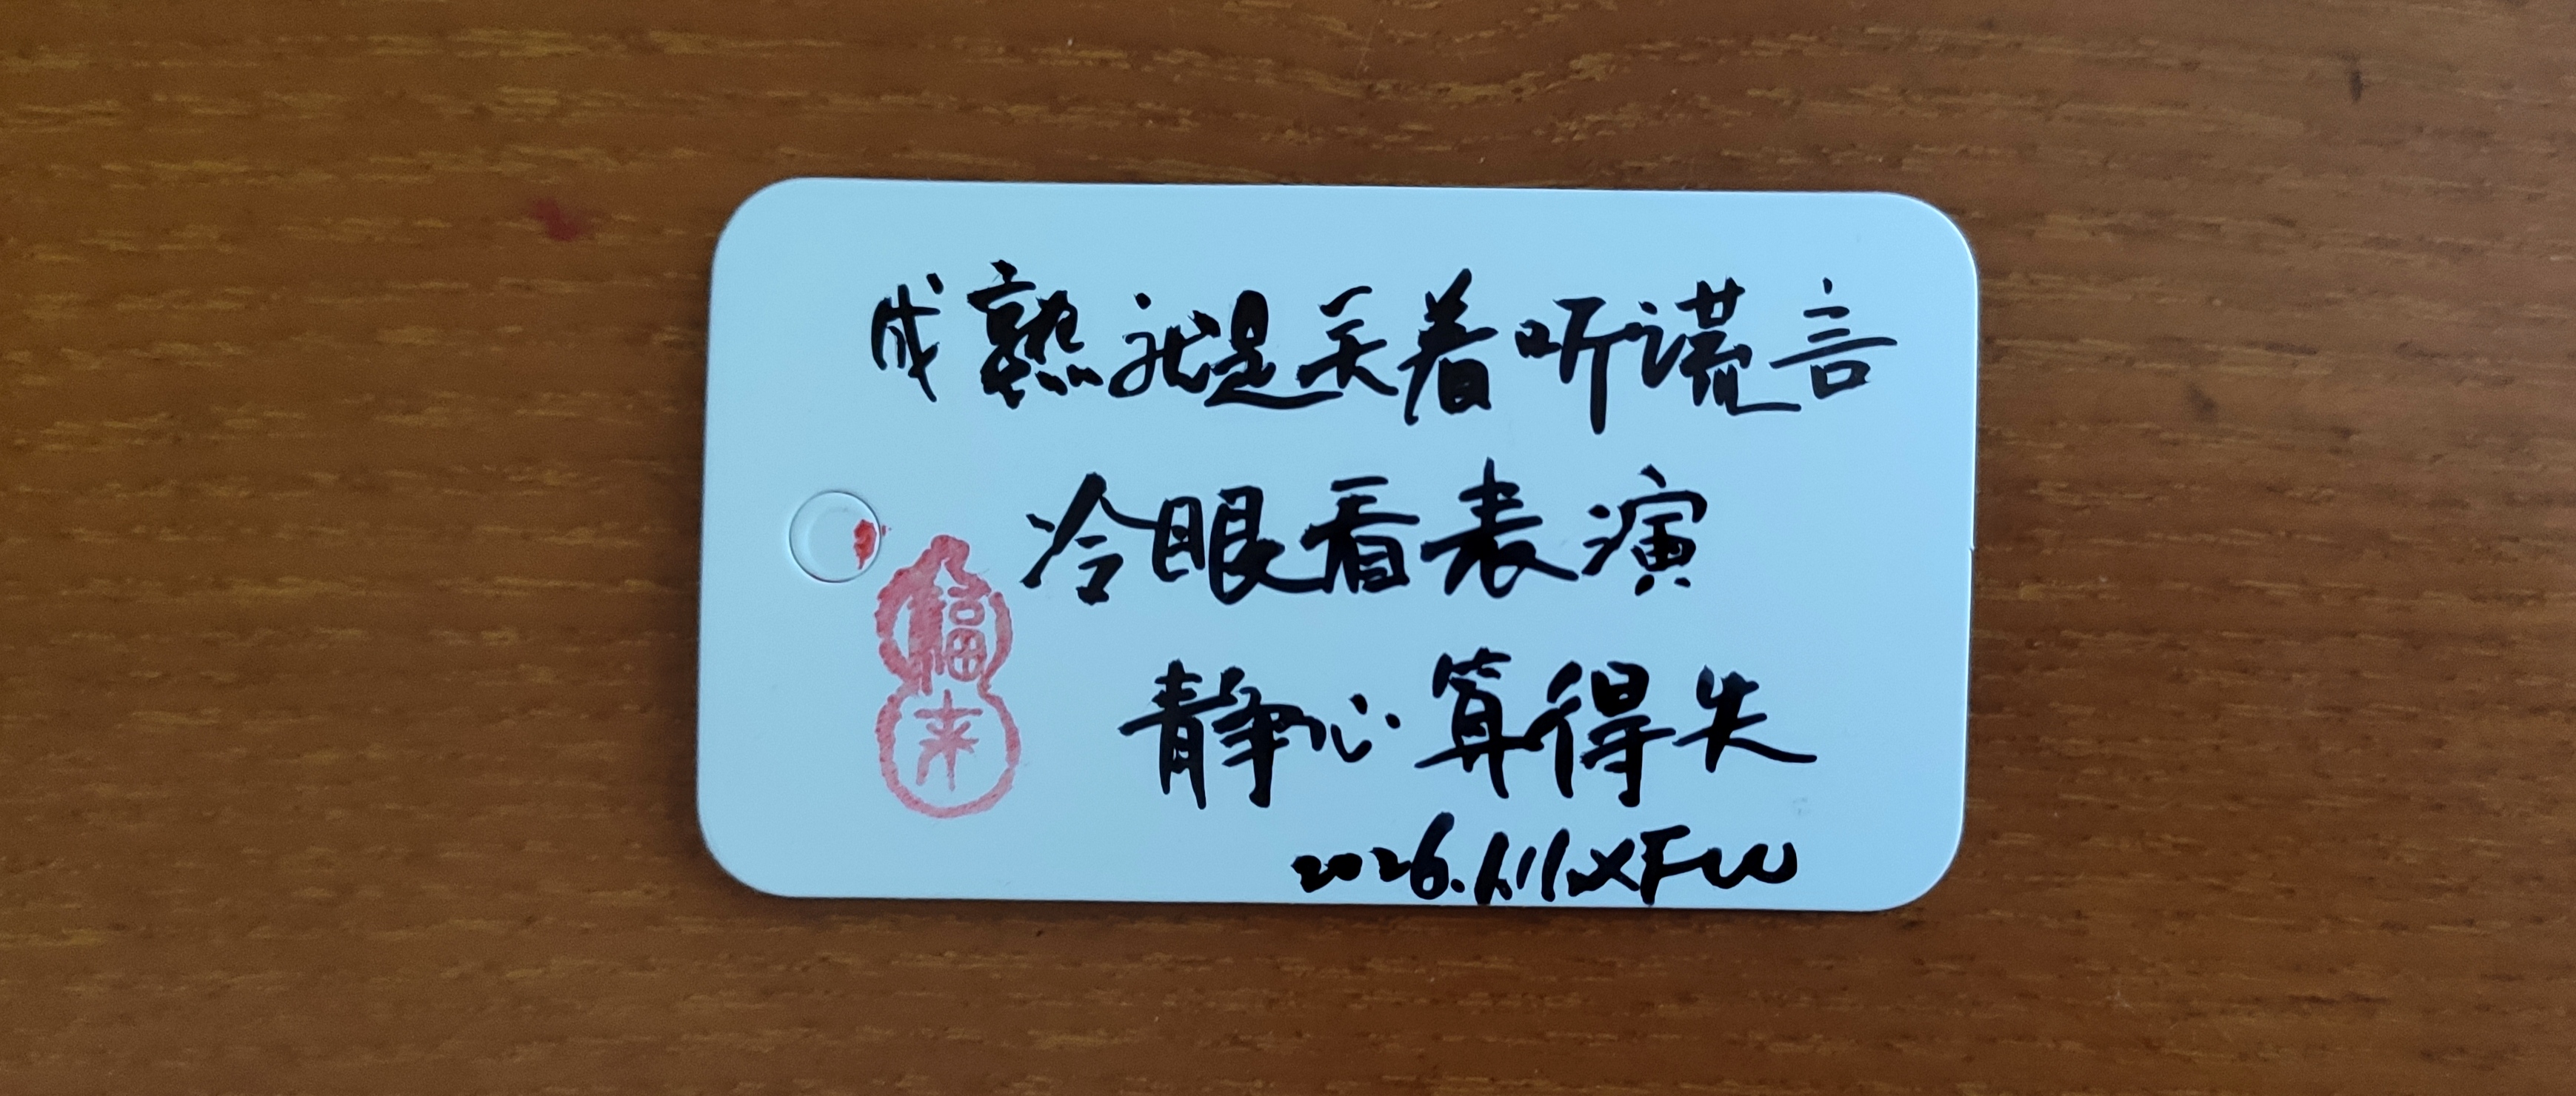 成熟就是笑着听谎言
冷眼看表演
静心算得失
2026.1.11.XFW
福
来